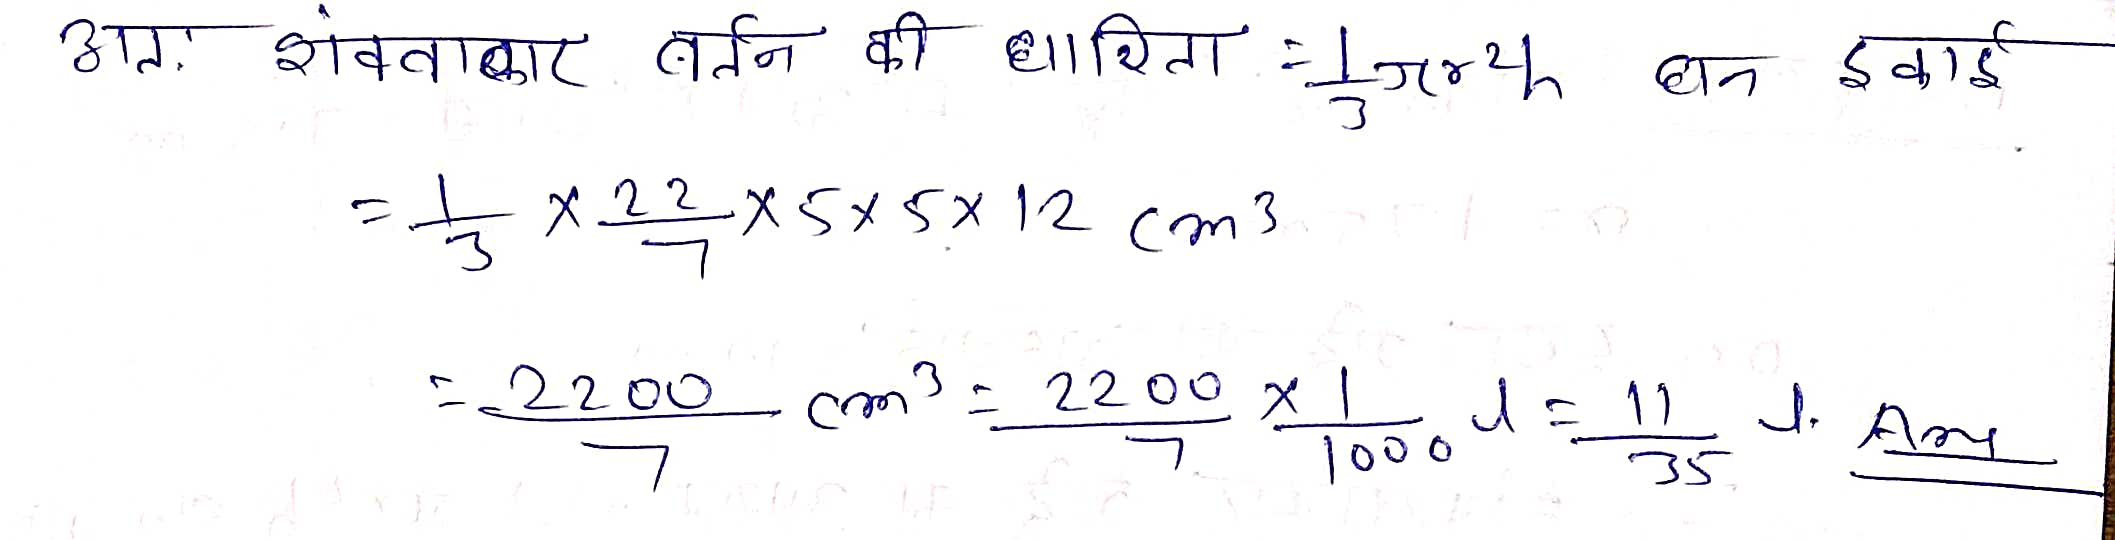 अतः शंक्वाकार बर्तन की धारिता = 1/3 πr²h घन इकाई
= 1/3 × 22/7 × 5 × 5 × 12 cm³
= 2200/7 cm³ = 2200/7 × 1/1000 l = 11/35 l. Ans